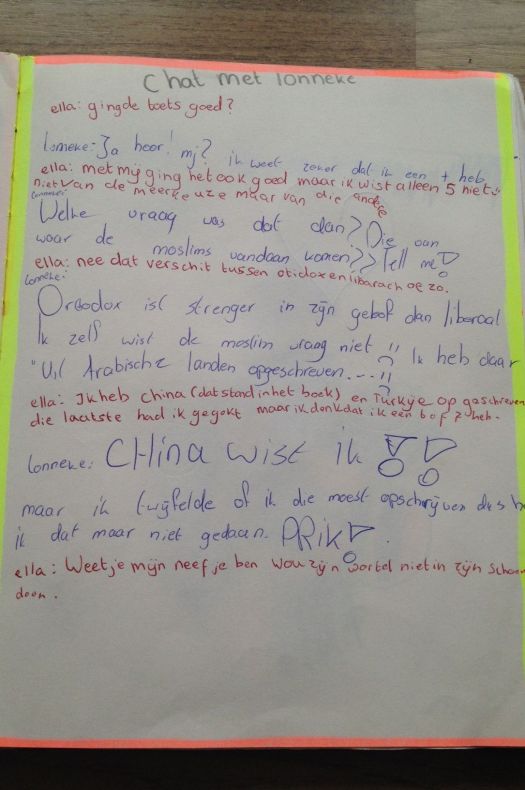 Chat met lonneke
ella: gingde toets goed?
Lonneke: Ja hoor! mij? ik weet zeker dat ik een + heb
ella: met mij ging het ook goed maar ik wist alleen 5 niet
niet van de meerkeuze maar van die andere
Lonneke:
Welke vraag was dat dan? Die van
waar de moslims vandaan komen?? Tell me!
ella: nee dat verschil tussen otidox en libarach oe zo.
Lonneke:
Ortodox ist strenger in zijn gelof dan liberaal
Ik zelf wist de moslim vraag niet!! Ik heb daar
"Uit Arabische landen opgeschreven...!!
ella: Ik heb China (dat stond in het boek) en Turkije op geschreven
die laatste had ik gegokt maar ik denk dat ik een b of z heb.
Lonneke: CHina wist ik!!
maar ik twijfelde of ik die moest opschrijven dus h
ik dat maar niet gedaan. PRIK!
ella: Weet je mijn neef je ben wou zijn wortel niet in zijn schoen
doen.